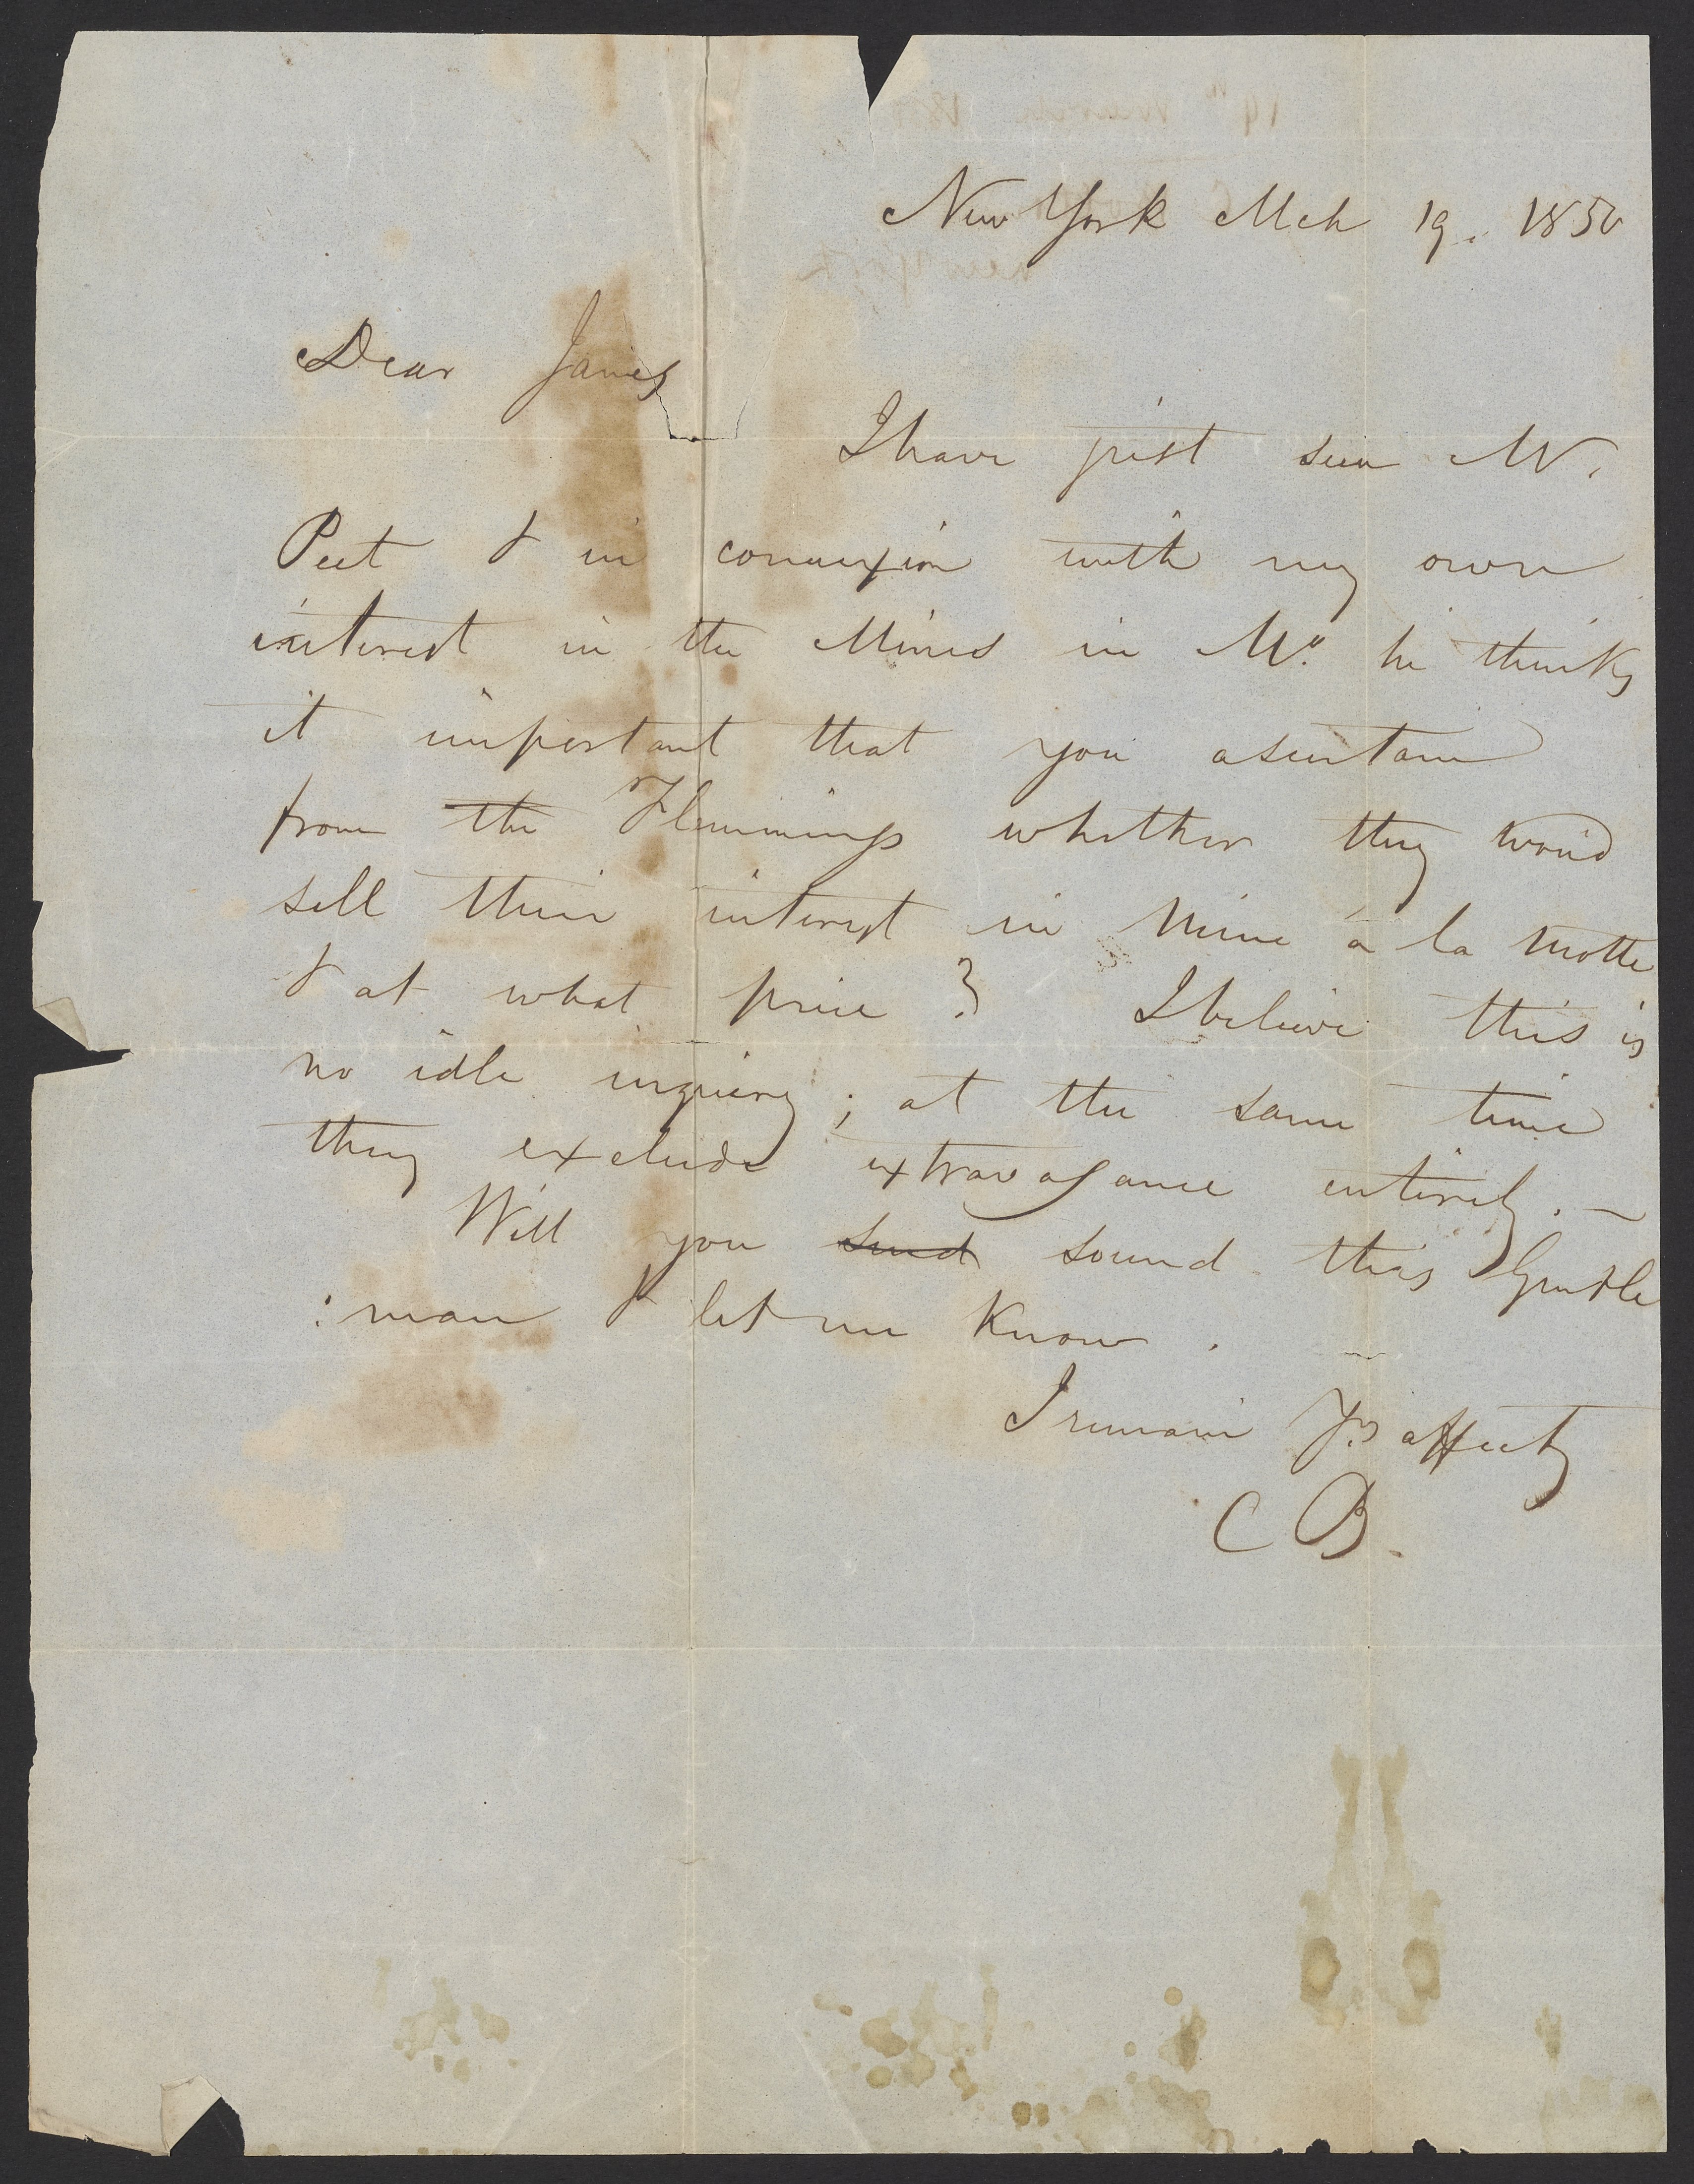 New York Mch 19. 1850
Dear James
I have just seen Mr.
Peet & in connexion with my own
interest in the Mines in Mo. he thinks
it important that you asertain
from the Flemmings whether they woud
sell their interest in Mine á la Motte
& at what price? I believe this is
no idle inquiry; at the same time
they exclude extravagance entirely. —
Will you send sound this Gentle
:man & let me know.
I remain Yrs affecty
C B.